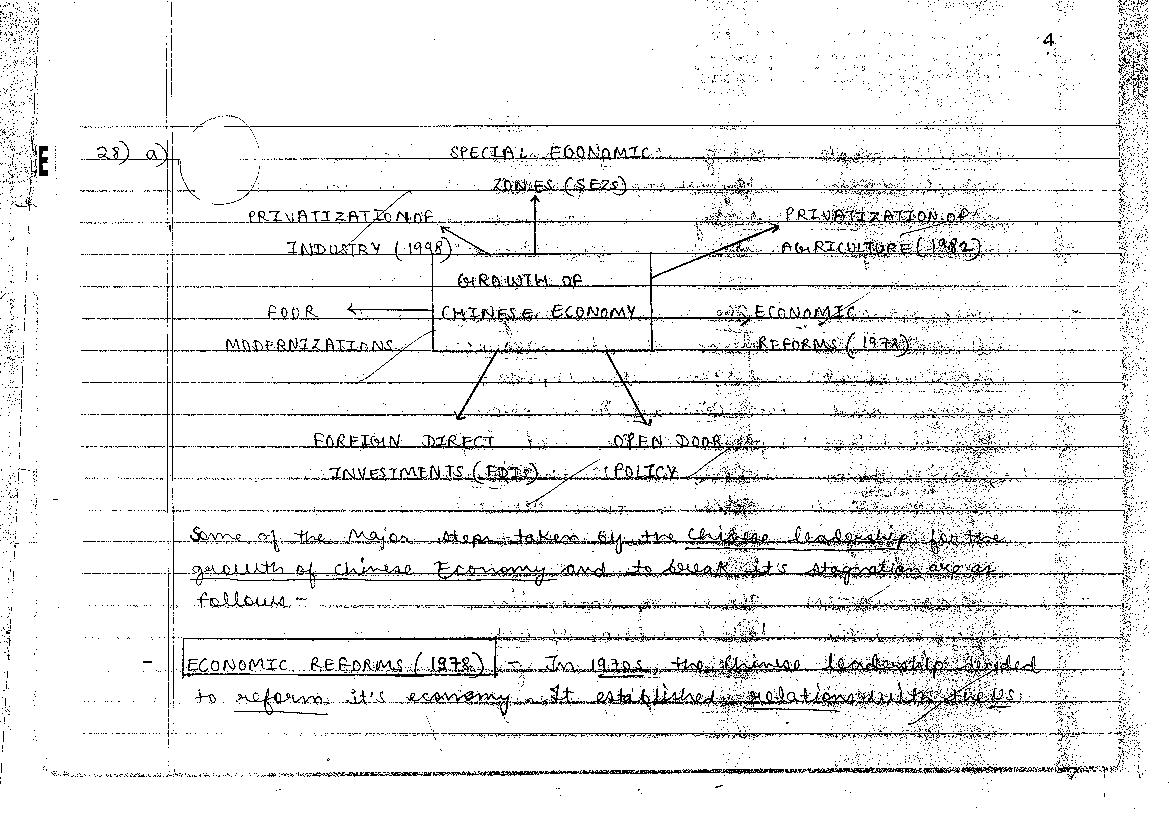 4
E
28) a)
SPECIAL ECONOMIC
ZONES (SEZs)
PRIVATIZATION OF
PRIVATIZATION OF
INDUSTRY (1998)
AGRICULTURE (1982)
GROWTH OF
FOUR
CHINESE ECONOMY
ECONOMIC
MODERNIZATIONS
REFORMS (1978)
FOREIGN DIRECT
OPEN DOOR
INVESTMENTS (FDIs)
POLICY
Some of the Major steps taken by the Chinese leadership for the
growth of Chinese Economy and to break it's stagnation are as
follows -
- ECONOMIC REFORMS (1978) - In 1970s, the Chinese leadership decided
to reform it's economy. It established relations with the US